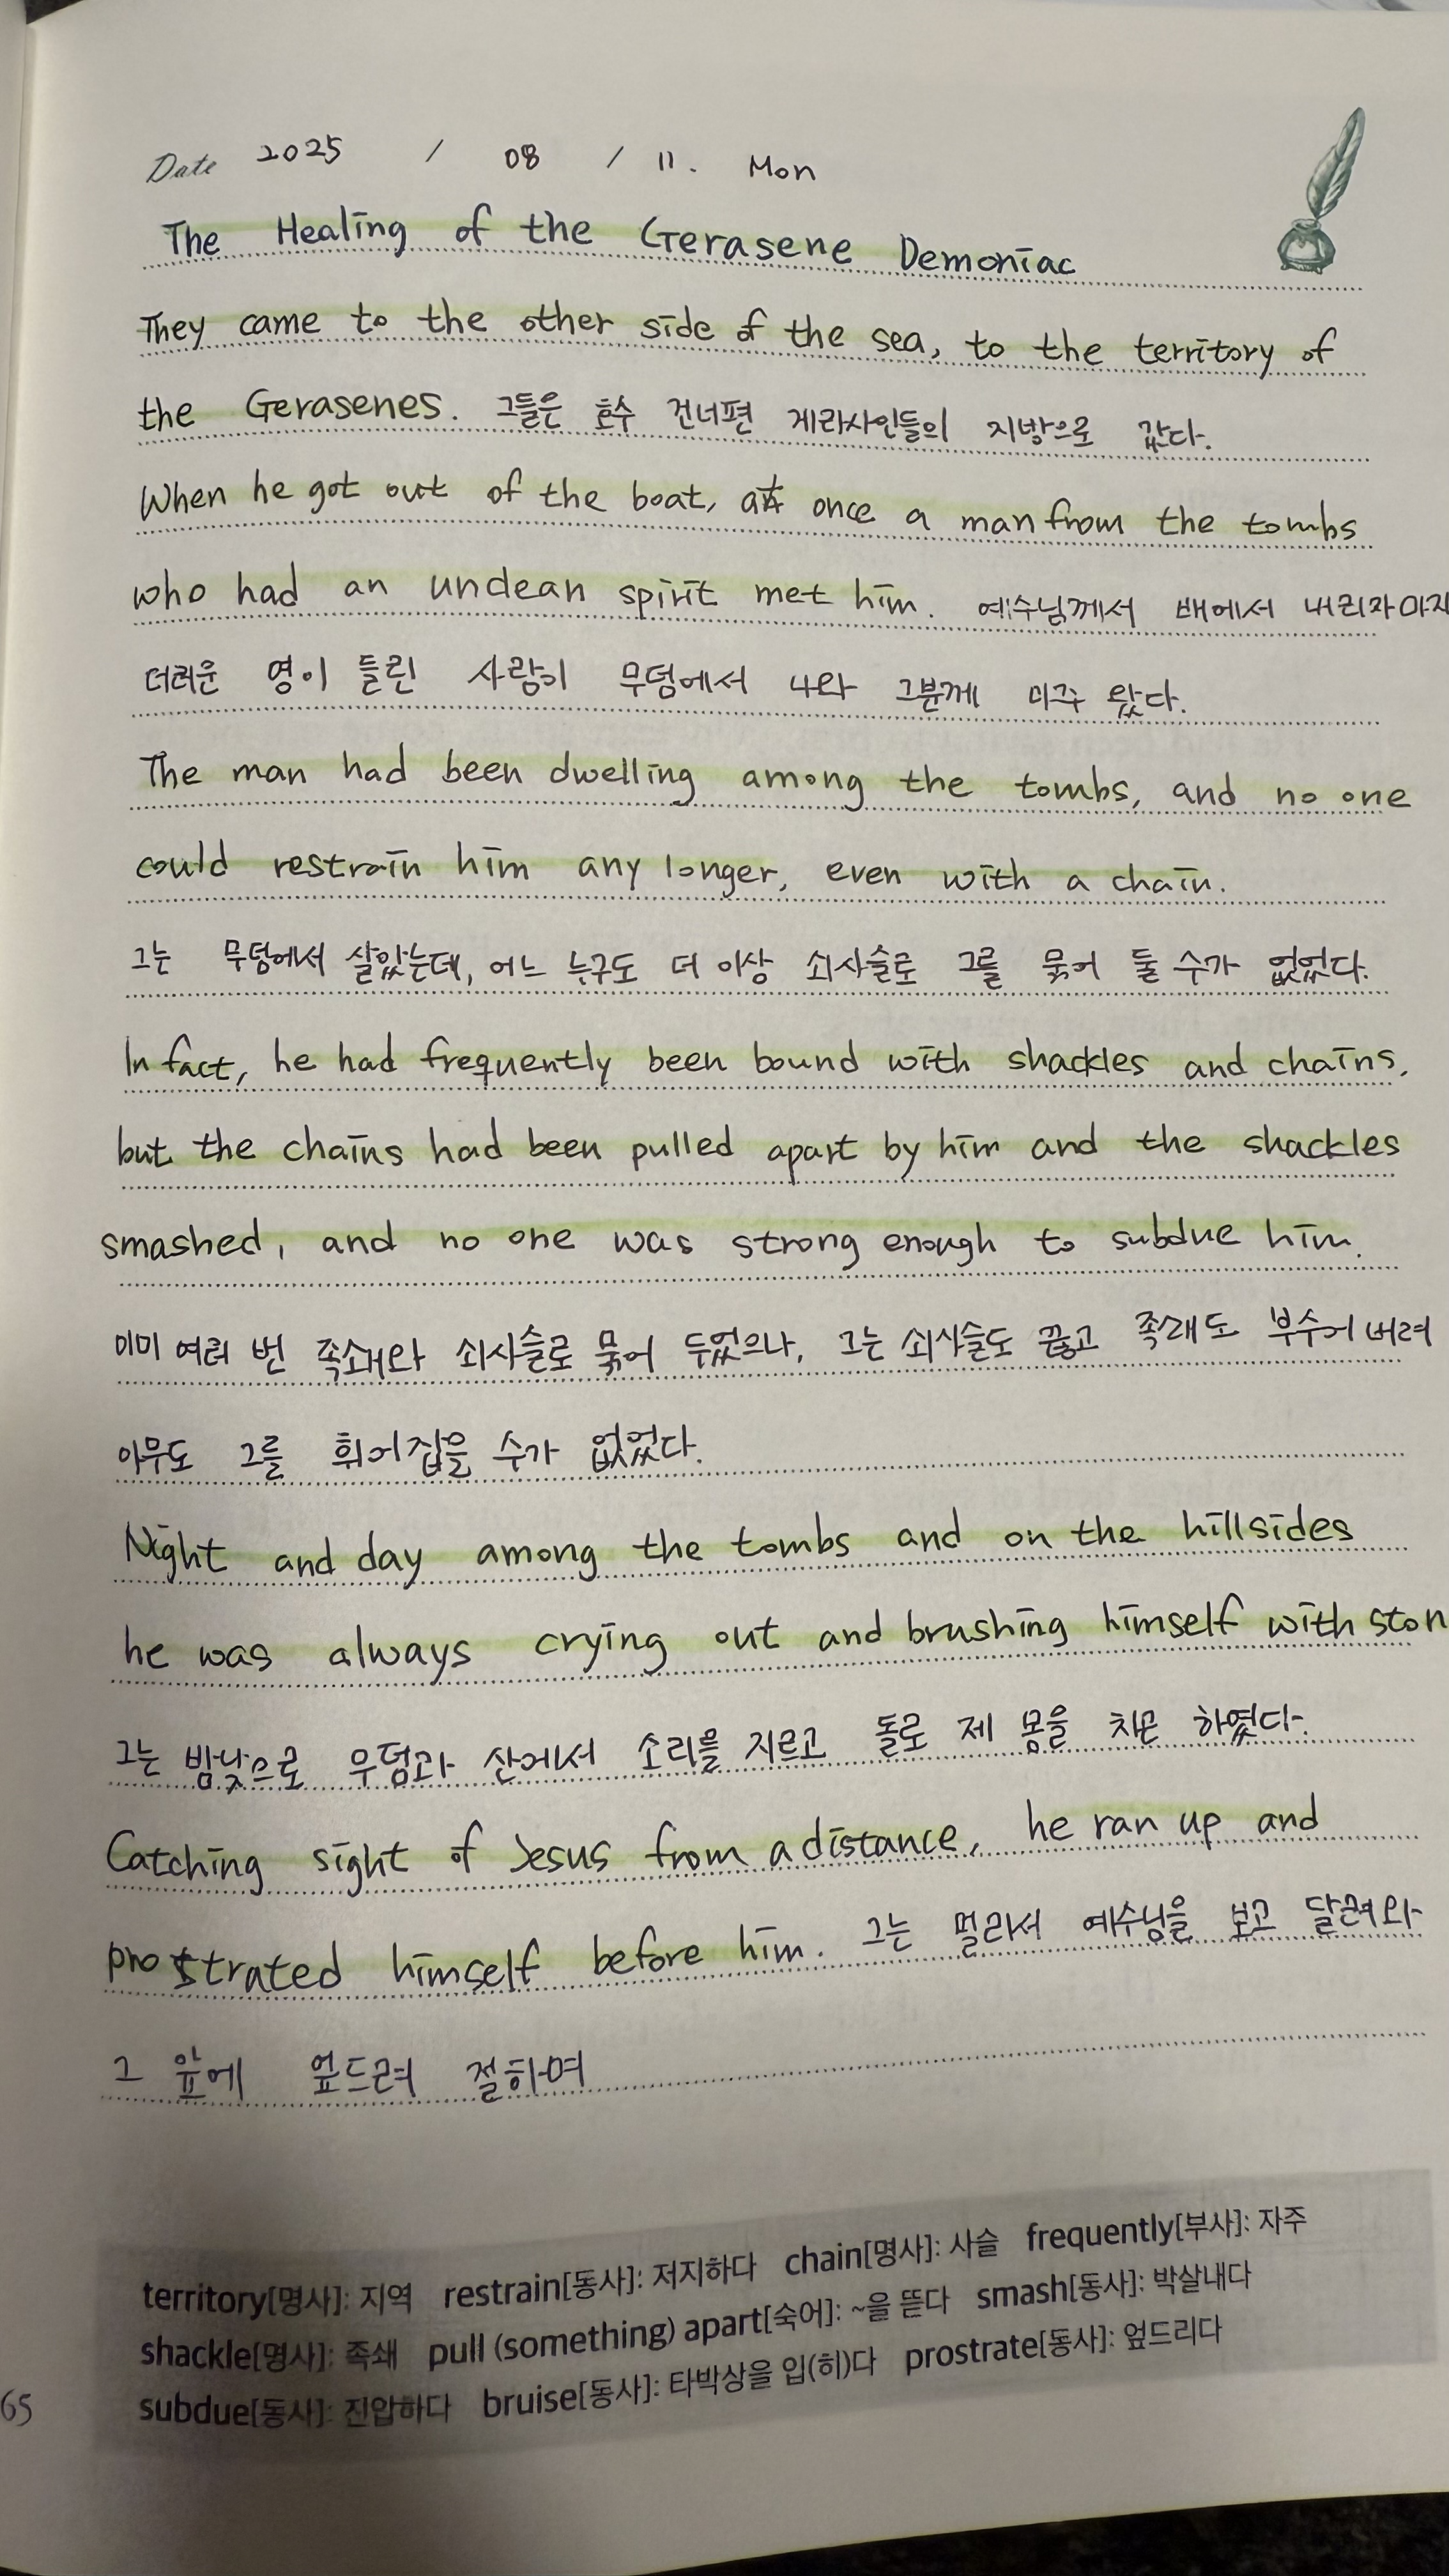 Date 2025 / 08 / 11. Mon
The Healing of the Gerasene Demoniac
They came to the other side of the sea, to the territory of
the Gerasenes. 그들은 호수 건너편 게라사인들의 지방으로 갔다.
When he got out of the boat, at once a man from the tombs
who had an unclean spirit met him. 예수님께서 배에서 내리자마자
더러운 영이 들린 사람이 무덤에서 나와 그분께 마주 왔다.
The man had been dwelling among the tombs, and no one
could restrain him any longer, even with a chain.
그는 무덤에서 살았는데, 어느 누구도 더 이상 쇠사슬로 그를 묶어 둘 수가 없었다.
In fact, he had frequently been bound with shackles and chains,
but the chains had been pulled apart by him and the shackles
smashed, and no one was strong enough to subdue him.
이미 여러 번 족쇄와 쇠사슬로 묶어 두었으나, 그는 쇠사슬도 끊고 족쇄도 부수어 버려
아무도 그를 휘어잡을 수가 없었다.
Night and day among the tombs and on the hillsides
he was always crying out and brushing himself with ston
그는 밤낮으로 무덤과 산에서 소리를 지르고 돌로 제 몸을 치곤 하였다.
Catching sight of Jesus from a distance, he ran up and
prostrated himself before him. 그는 멀리서 예수님을 보고 달려와
그 앞에 엎드려 절하며
territory[명사]: 지역 restrain[동사]: 저지하다 chain[명사]: 사슬 frequently[부사]: 자주
shackle[명사]: 족쇄 pull (something) apart[숙어]: ~을 뜯다 smash[동사]: 박살내다
subdue[동사]: 진압하다 bruise[동사]: 타박상을 입(히)다 prostrate[동사]: 엎드리다
65